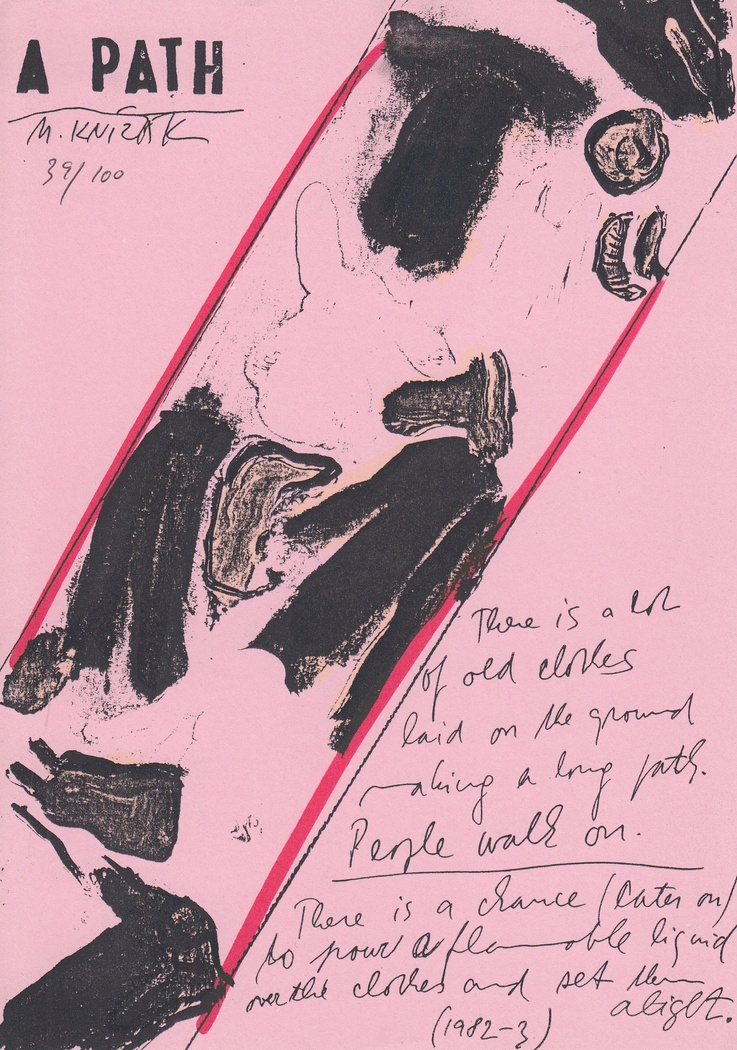 A PATH
M. KNÍŽÁK
39/100
There is a lot
of old clothes
laid on the ground
making a long path.
People walk on.
There is a chance (later on)
to pour a flammable liquid
over the clothes and set them
alight.
(1982-3)